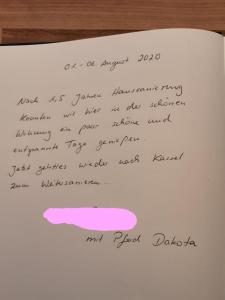 01.-06. August 2020
Nach 1,5 Jahren Haussanierung
konnten wir hier in der schönen
Wohnung ein paar schöne und
entspannte Tage genießen.
Jetzt geht es wieder nach Kassel
zum Weitersanieren.
mit Pferd Dakota